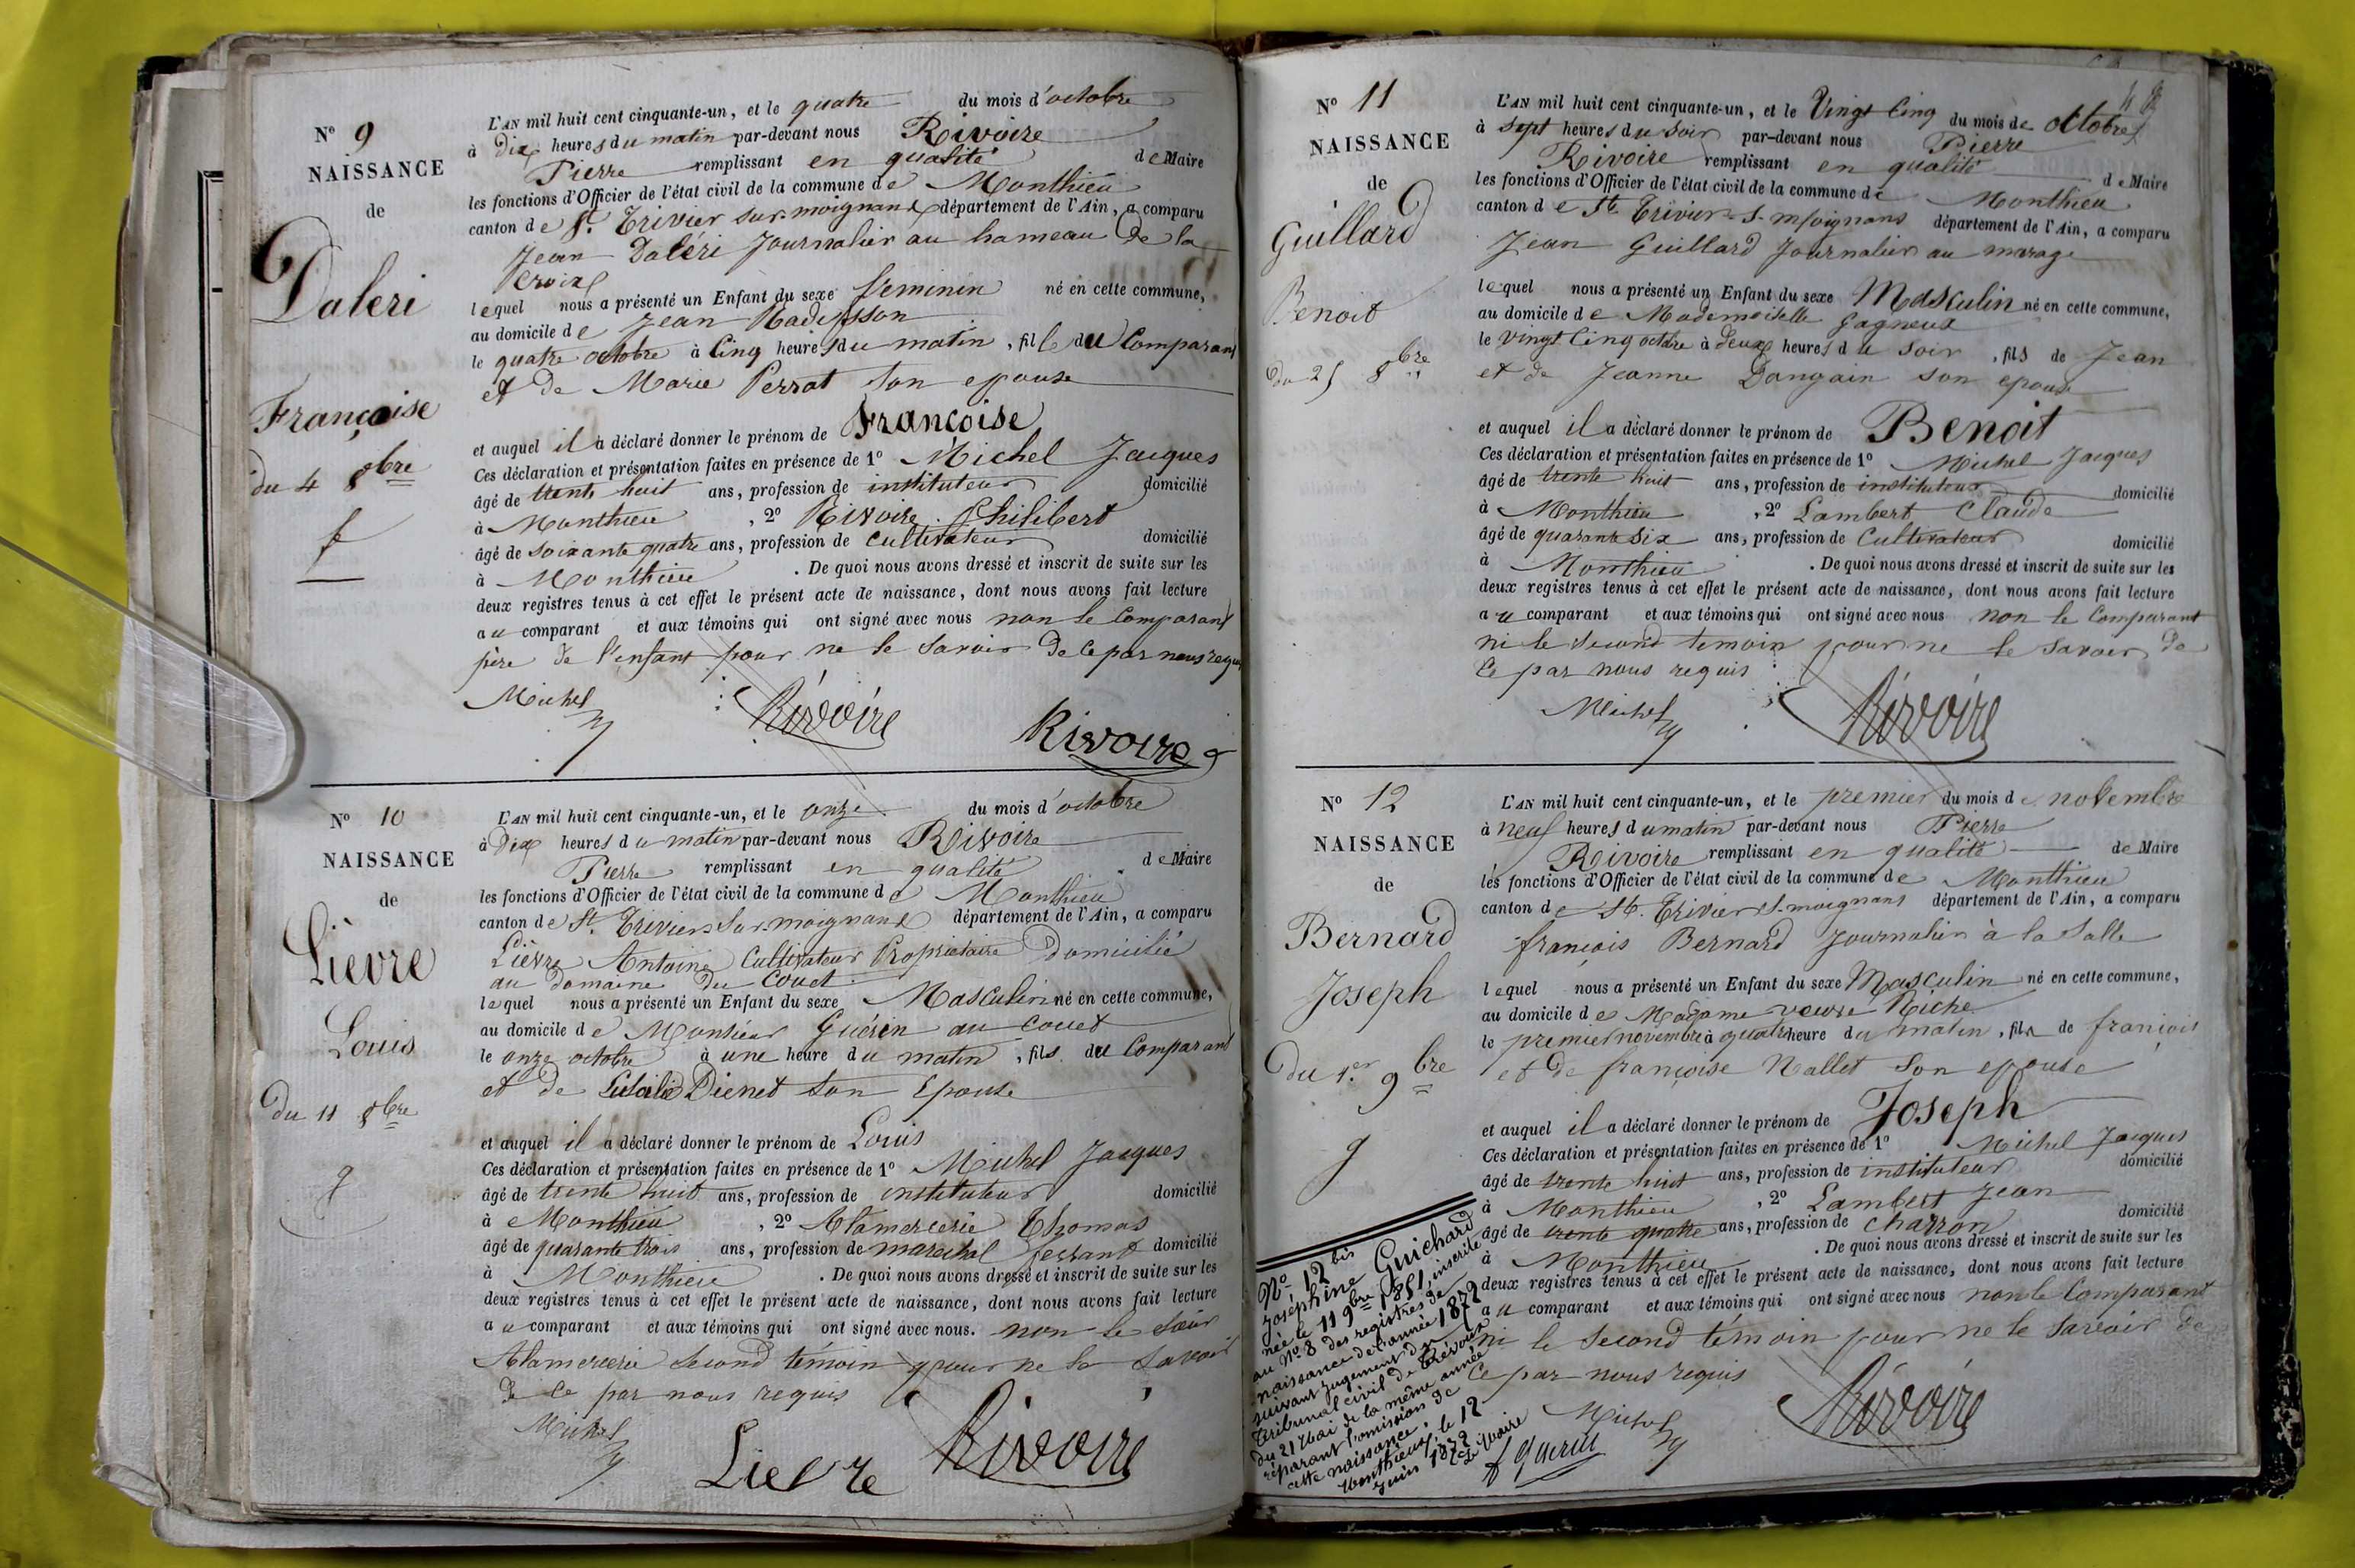 N° 9
NAISSANCE
de
Daleri
Françoise
du 4 8bre
f
L'AN mil huit cent cinquante-un, et le quatre du mois d'octobre
à Dix heures du matin par-devant nous Rivoire
Pierre remplissant en qualité de Maire
les fonctions d'Officier de l'état civil de la commune de Monthieu
canton de St. Trivier sur-moignans département de l'Ain, a comparu
Jean Daléri Journalier au hameau de la
lequel nous a présenté un Enfant du sexe feminin né en cette commune,
au domicile de Jean
le quatre octobre à Cinq heures du matin, fille du Comparant
et de Marie Perrat son epouse
et auquel il a déclaré donner le prénom de Francoise
Ces déclaration et présentation faites en présence de 1° Michel Jacques
âgé de trente huit ans, profession de instituteur domicilié
à Monthieu, 2° Rivoire Philibert
âgé de soixante quatre ans, profession de Cultivateur domicilié
à Monthieu. De quoi nous avons dressé et inscrit de suite sur les
deux registres tenus à cet effet le présent acte de naissance, dont nous avons fait lecture
au comparant et aux témoins qui ont signé avec nous non le Comparant
père de l'enfant pour ne le savoir de ce par nous requis
Michel Rivoire Rivoire
N° 10
NAISSANCE
de
Lièvre
Louis
Du 11 8bre
L'AN mil huit cent cinquante-un, et le onze du mois d'octobre
à Dix heures du matin par-devant nous Rivoire
Pierre remplissant en qualité de Maire
les fonctions d'Officier de l'état civil de la commune de Monthieu
canton de St. Trivier sur-moignans département de l'Ain, a comparu
Lièvre Antoine Cultivateur Propriétaire Domicilié
au domaine du Couet
lequel nous a présenté un Enfant du sexe Masculin né en cette commune,
au domicile de Monsieur Guérin au Couet
le onze octobre à une heure du matin, fils du Comparant
et de Dienet son Epouse
et auquel il a déclaré donner le prénom de Louis
Ces déclaration et présentation faites en présence de 1° Michel Jacques
âgé de trente huit ans, profession de instituteur domicilié
à Monthieu, 2° Alamercerie Thomas
âgé de quarante trois ans, profession de marechal ferrant domicilié
à Monthieu. De quoi nous avons dressé et inscrit de suite sur les
deux registres tenus à cet effet le présent acte de naissance, dont nous avons fait lecture
au comparant et aux témoins qui ont signé avec nous. non le Sieur
Alamercerie second témoin pour ne le savoir
de ce par nous requis
Michel
Lievre Rivoire
N° 11
NAISSANCE
de
Guillard
Benoit
du 25 8bre
L'AN mil huit cent cinquante-un, et le Vingt Cinq du mois de Octobre
à sept heures du soir par-devant nous Pierre
Rivoire remplissant en qualité de Maire
les fonctions d'Officier de l'état civil de la commune de Monthieu
canton de St. Trivier-s-moignans département de l'Ain, a comparu
Jean Guillard Journalier au marage
lequel nous a présenté un Enfant du sexe Masculin né en cette commune,
au domicile de Mademoiselle Gagneux
le vingt Cinq octobre à deux heures du soir, fils de Jean
et de Jeanne Dangain son epouse
et auquel il a déclaré donner le prénom de Benoit
Ces déclaration et présentation faites en présence de 1° Michel Jacques
âgé de trente huit ans, profession de instituteur domicilié
à Monthieu, 2° Lambert Claude
âgé de quarante six ans, profession de Cultivateur domicilié
à Monthieu. De quoi nous avons dressé et inscrit de suite sur les
deux registres tenus à cet effet le présent acte de naissance, dont nous avons fait lecture
au comparant et aux témoins qui ont signé avec nous non le Comparant
ni le second temoin pour ne le savoir de
Ce par nous requis
Michel Rivoire
N° 12
NAISSANCE
de
Bernard
Joseph
Du 1er 9bre
g
L'AN mil huit cent cinquante-un, et le premier du mois de novembre
à neuf heures du matin par-devant nous Pierre
Rivoire remplissant en qualité de Maire
les fonctions d'Officier de l'état civil de la commune de Monthieu
canton de St. Trivier s-moignans département de l'Ain, a comparu
françois Bernard Journalier à la Salle
lequel nous a présenté un Enfant du sexe Masculin né en cette commune,
au domicile de Madame veuve Riche
le premier novembre à quatre heure du matin, fils de françois
et de françoise Nallet son epouse
et auquel il a déclaré donner le prénom de Joseph
Ces déclaration et présentation faites en présence de 1° Michel Jacques
âgé de trente huit ans, profession de instituteur domicilié
à Monthieu, 2° Lambert Jean
âgé de trente quatre ans, profession de charron domicilié
à Monthieu. De quoi nous avons dressé et inscrit de suite sur les
deux registres tenus à cet effet le présent acte de naissance, dont nous avons fait lecture
au comparant et aux témoins qui ont signé avec nous non le Comparant
ni le second témoin pour ne le savoir de
Ce par nous requis
Michel Rivoire
N° 12 bis
Josephine Guichard
née le 11 9bre 1851, inscrite
au N° 8 des registres de
naissance de l'année 1872
suivant jugement du
tribunal civil de Trévoux
du 21 Mai de la même année
réparant l'omission de
cette naissance.
Monthieux, le 12
juin 1872
Le Maire
f Guerin